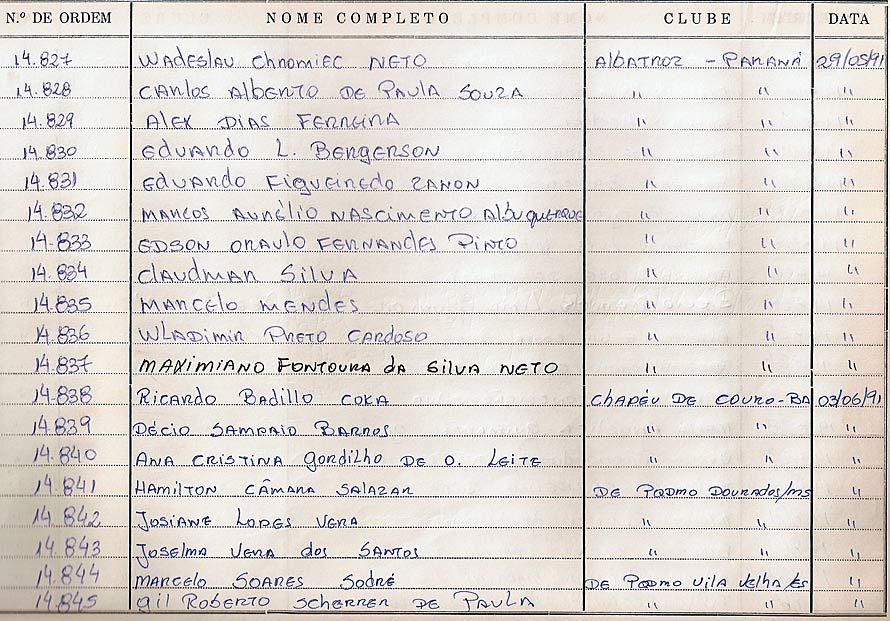 N.º DE ORDEM NOME COMPLETO CLUBE DATA
14.827 WADESLAU Chnomiec NETO AlbATROZ - PARANÁ 29/05/91
14.828 CARLOS AlbERTO DE PAULA SOUZA " " "
14.829 ALEX DIAS FERREIRA " " "
14.830 EDUARDO L. BERGERSON " " "
14.831 EDUARDO FIGUEIREDO ZANON " " "
14.832 MARCOS AURÉLIO NASCIMENTO AlbuquERQUE " " "
14.833 EDSON ORAULO FERNANDES PINTO " " "
14.834 CLAUDMAR SILVA " " "
14.835 MARCELO MENDES " " "
14.836 WLADIMIR PRETO CARDOSO " " "
14.837 MAXIMIANO FONTOURA da SILVA NETO " " "
14.838 RICARDO BADILLO COKA CHAPÉU DE COURO-BA 03/06/91
14.839 DÉCIO SAMPAIO BARROS " " "
14.840 ANA CRISTINA gordilho DE O. LEITE " " "
14.841 HAMILTON CÂMARA SALAZAR DE DOURADOS/MS "
14.842 JOSIANE LOPES VERA " " "
14.843 JOSELMA VERA dos SANTOS " " "
14.844 MARCELO SOARES SODRÉ DE VILA VELHA/ES "
14.845 gil ROBERTO SCHERRER DE PAULA " " "